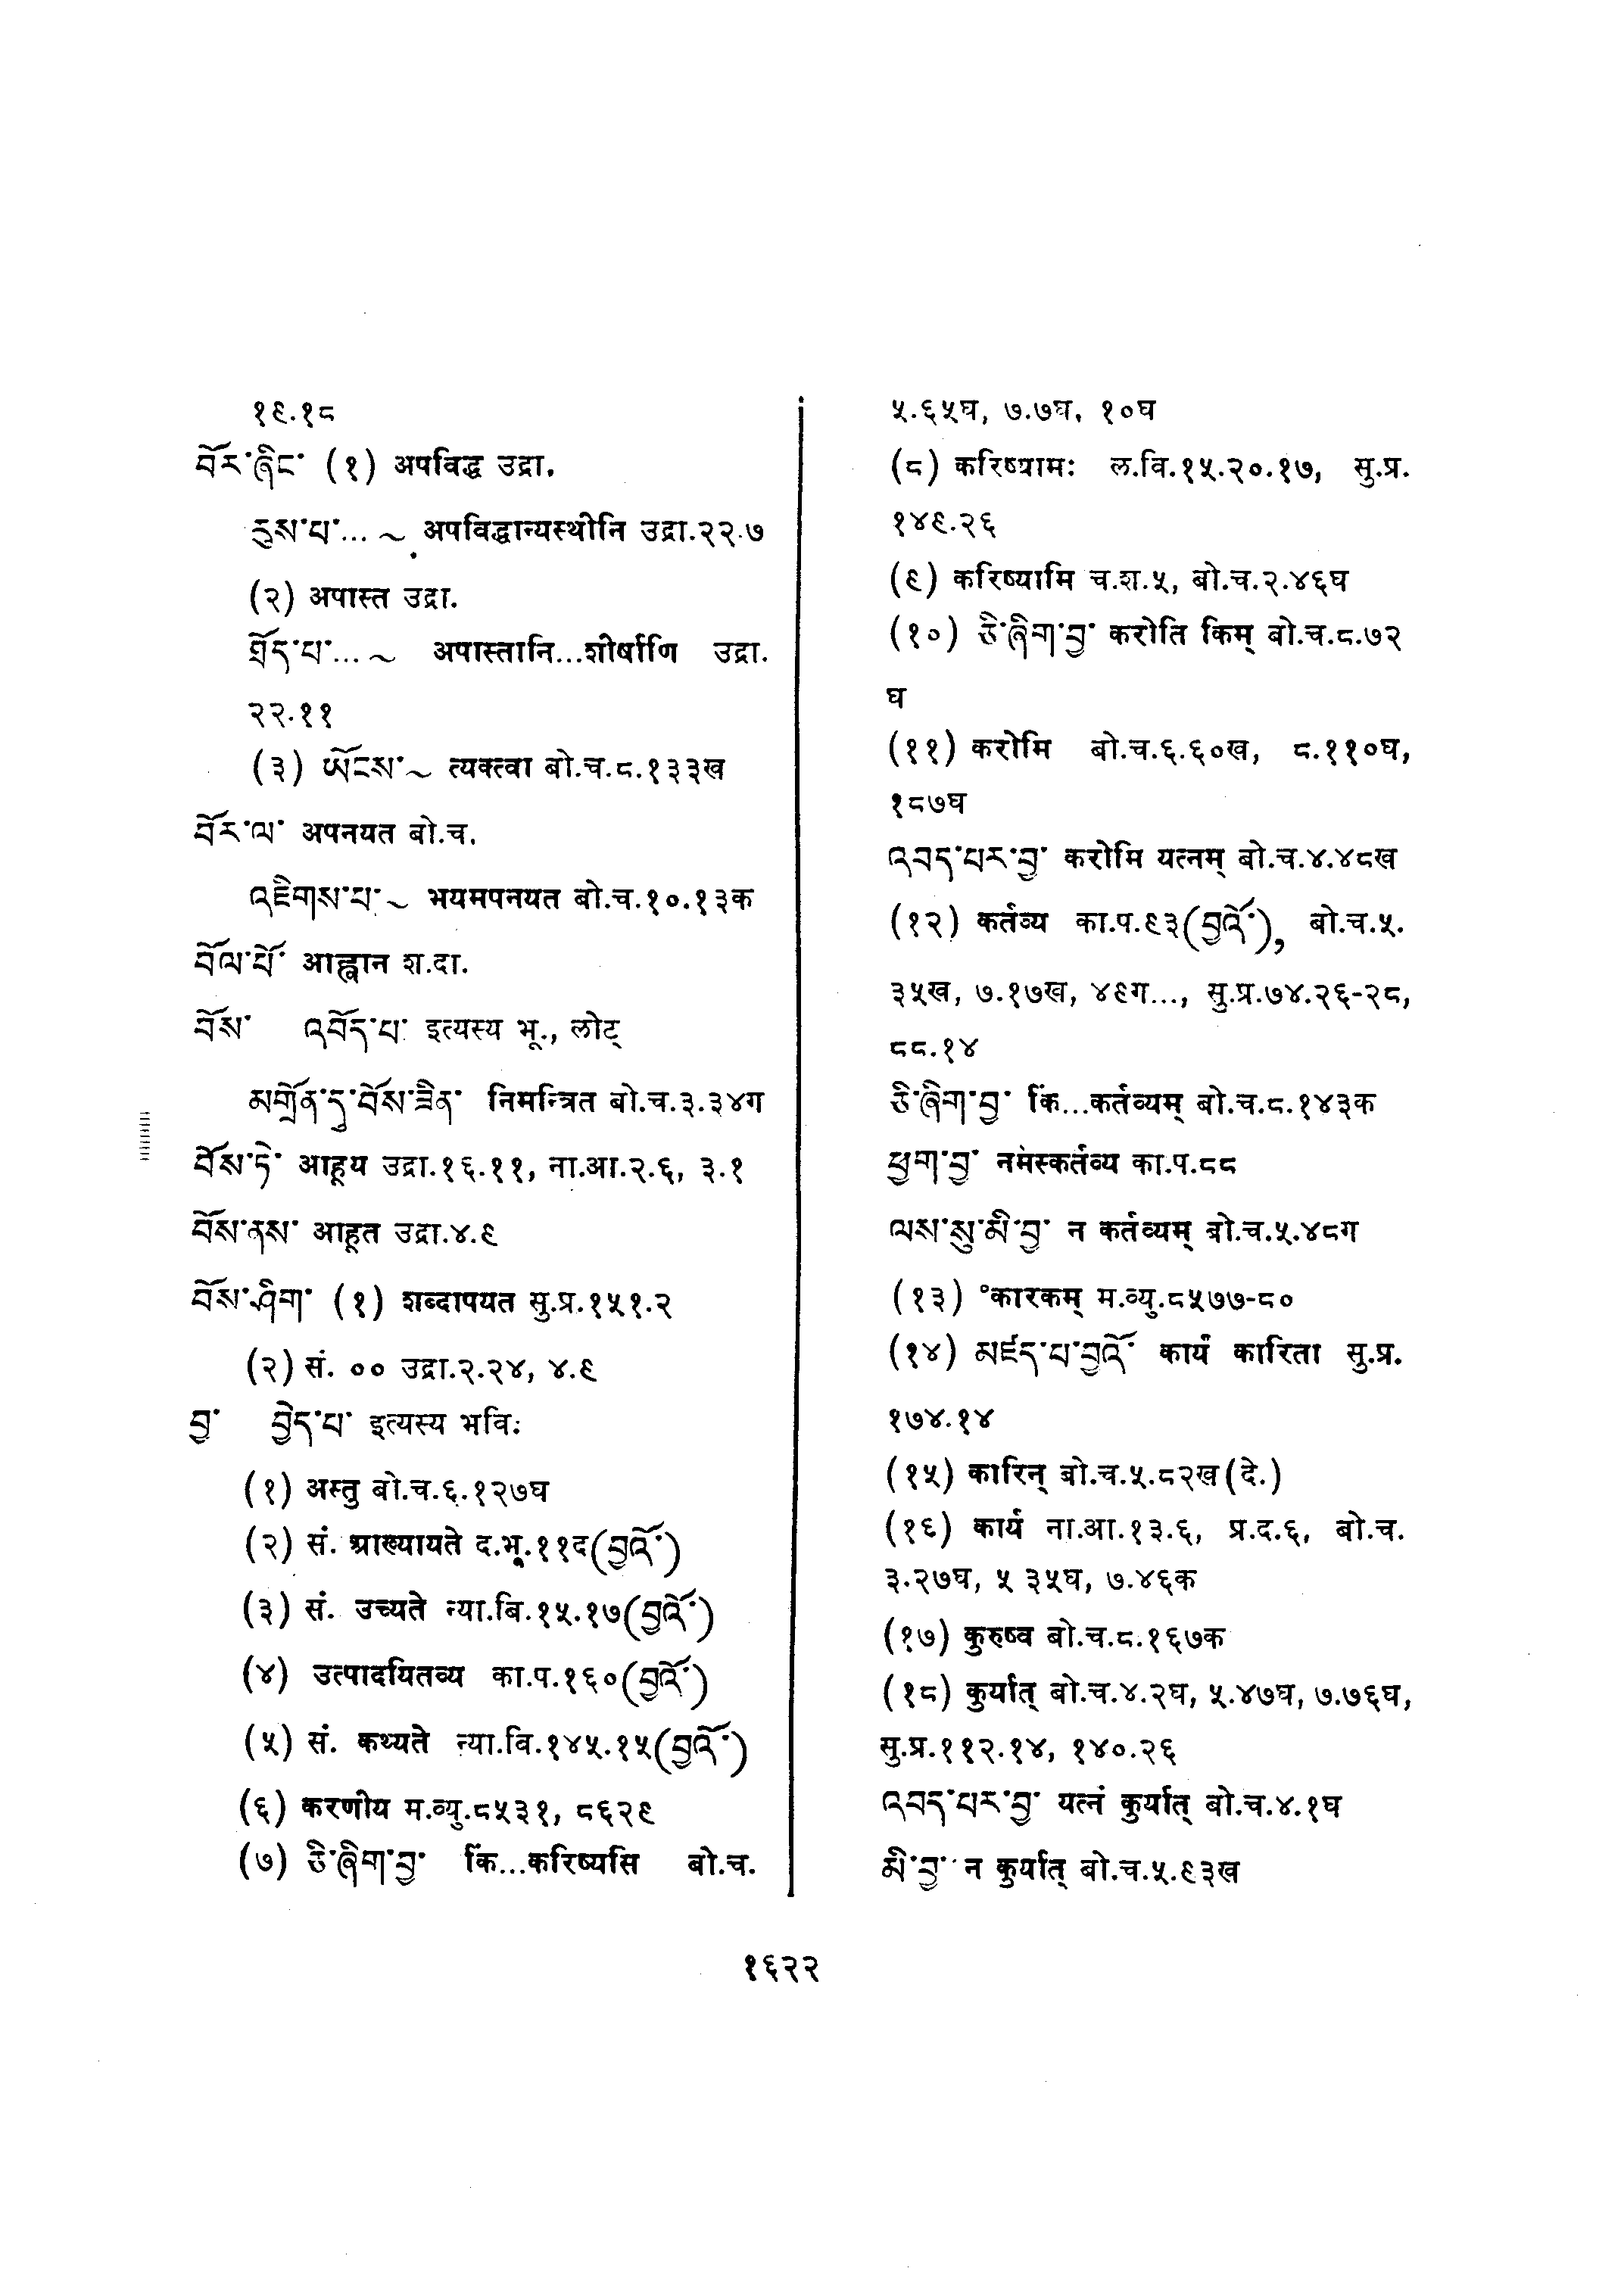 १९.१८
བོར་ཞིང་ (१) अपविद्ध उद्रा.
རུས་པ་... ~ अपविद्धान्यस्थीनि उद्रा.२२.७
(२) अपास्त उद्रा.
ཐོད་པ་... ~ अपास्तानि...शीर्षाणि उद्रा.
२२.११
(३) ཡོངས་ ~ त्यक्त्वा बो.च.८.१३३ख
བོར་ལ་ अपनयत बो.च.
འཇིགས་པ་ ~ भयमपनयत बो.च.१०.१३क
བོལ་པོ་ आह्वान श.दा.
བོས་ འབོད་པ་ इत्यस्य भू., लोट्
མགྲོན་དུ་བོས་ཟིན་ निमन्त्रित बो.च.३.३४ग
བོས་ཏེ་ आहूय उद्रा.१६.११, ना.आ.२.६, ३.१
བོས་ནས་ आहूत उद्रा.४.९
བོས་ཤིག་ (१) शब्दापयत सु.प्र.१५१.२
(२) सं. ०० उद्रा.२.२४, ४.९
བྱ་ བྱེད་པ་ इत्यस्य भवि:
(१) अस्तु बो.च.६.१२७घ
(२) सं. आख्यायते द.भू.११द(བྱའོ་)
(३) सं. उच्यते न्या.बि.१५.१७(བྱའོ་)
(४) उत्पादयितव्य का.प.१६०(བྱའོ་)
(५) सं. कथ्यते न्या.वि.१४५.१५(བྱའོ་)
(६) करणीय म.व्यु.८५३१, ८६२९
(७) ཅི་ཞིག་བྱ་ किं...करिष्यसि बो.च.
५.६५घ, ७.७घ, १०घ
(८) करिष्याम: ल.वि.१५.२०.१७, सु.प्र.
१४९.२६
(९) करिष्यामि च.श.५, बो.च.२.४६घ
(१०) ཅི་ཞིག་བྱ་ करोति किम् बो.च.८.७२
घ
(११) करोमि बो.च.६.६०ख, ८.११०घ,
१८७घ
འབད་པར་བྱ་ करोमि यत्नम् बो.च.४.४८ख
(१२) कर्तव्य का.प.९३(བྱའོ་), बो.च.५.
३५ख, ७.१७ख, ४९ग..., सु.प्र.७४.२६-२८,
८८.१४
ཅི་ཞིག་བྱ་ किं...कर्तव्यम् बो.च.८.१४३क
ཕྱག་བྱ་ नमस्कर्तव्य का.प.८८
ལས་སུ་མི་བྱ་ न कर्तव्यम् बो.च.५.४८ग
(१३) °कारकम् म.व्यु.८५७७-८०
(१४) མཛད་པ་བྱའོ་ कार्यं कारिता सु.प्र.
१७४.१४
(१५) कारिन् बो.च.५.८२ख(दे.)
(१६) कार्य ना.आ.१३.६, प्र.द.६, बो.च.
३.२७घ, ५ ३५घ, ७.४६क
(१७) कुरुष्व बो.च.८.१६७क
(१८) कुर्यात् बो.च.४.२घ, ५.४७घ, ७.७६घ,
सु.प्र.११२.१४, १४०.२६
འབད་པར་བྱ་ यत्नं कुर्यात् बो.च.४.१घ
མི་བྱ་ न कुर्यात् बो.च.५.९३ख
१६२२